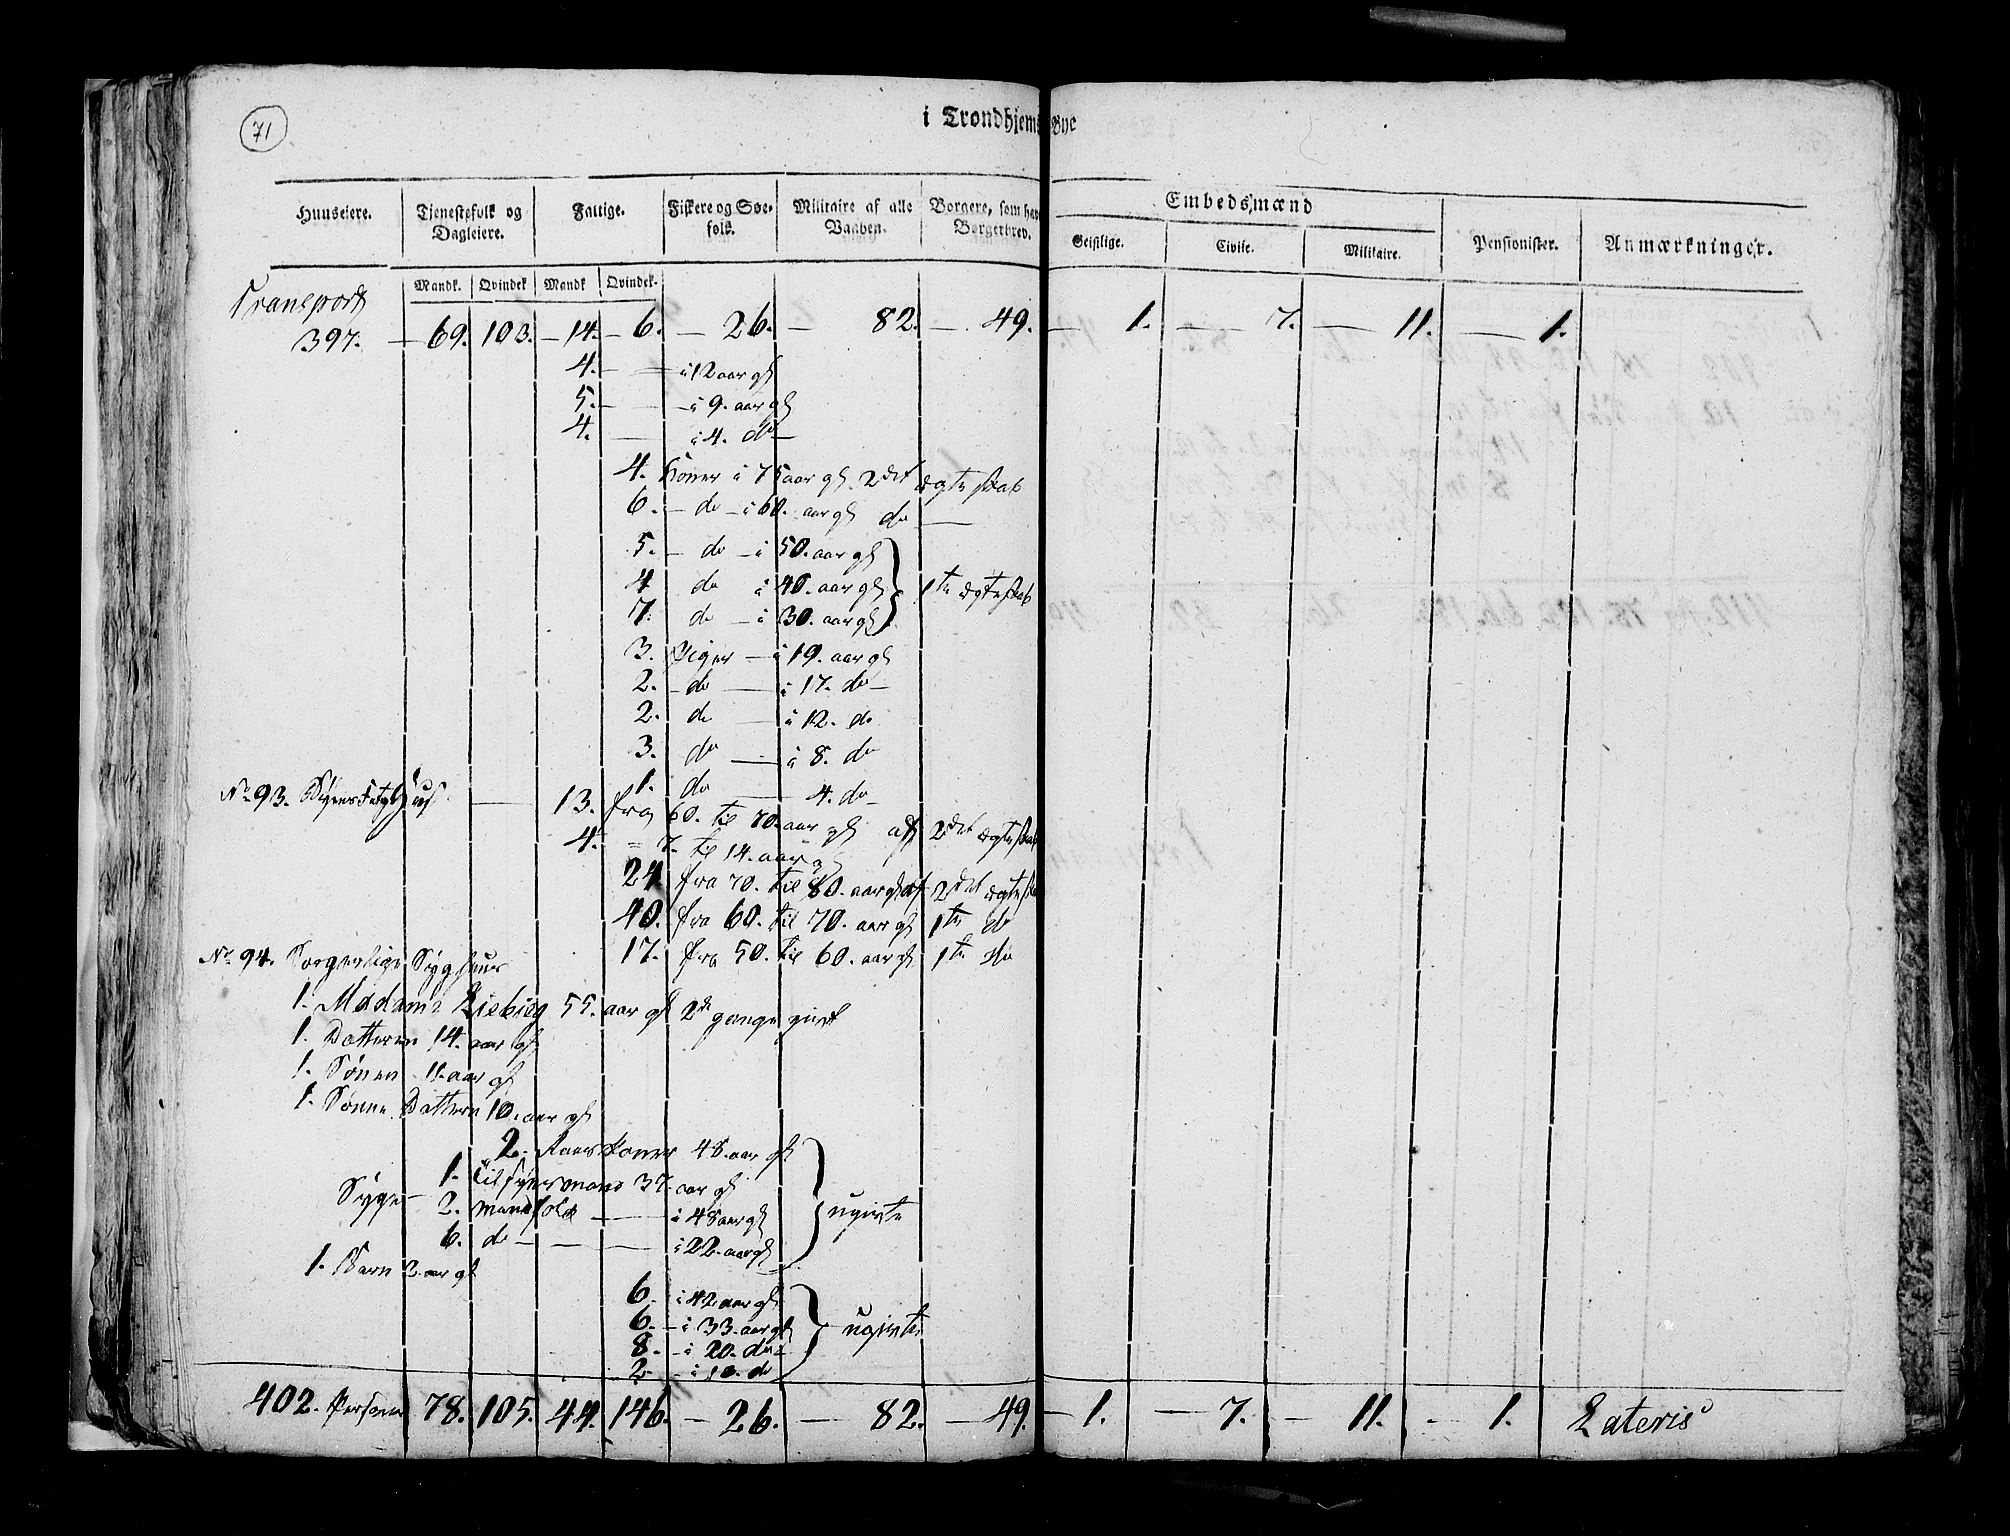 71
i Trondhjems Bye
Huuseiere. Tjenestefolk og Dagleiere. Fattige. Fiskere og Søefolk. Militaire af alle Vaaben. Borgere, som have Borgerbrev. Embedsmænd Pensionister. Anmærkninger.
Geistlige. Civile. Militaire.
Mandk. Qvindek Mandk Qvindek.
Transport
397. — 69. 103. — 14. — 6. — 26. — 82. — 49. — 1. — 7. — 11. — 1.
4. — — à 12 aar gl
5. — — à 9. aar gl
4. — à 4. do —
4. Koner à 75 aar gl. 2det ægteskab
6. — do — à 60. aar gl do —
5. — do — à 50. aar gl
4 do à 40. aar gl 1te ægteskab
7. do — à 30. aar gl
3. Piger — à 19. aar gl
2. — do — à 17. do —
2. do — à 12. do
3. do — à 8. do
1. do — 4. do —
No 93. Byens Fatighuus — 13. fra 60. til 70. aar gl af 2det ægteskab
4. = 7. til 14. aar gl
24. fra 70. til 80. aar gl af 2det ægteska
40. fra 60. til 70. aar gl 1te do
17. fra 50. til 60. aar gl 1te do
No 94. Borgerlige Syghuus
1. Madame Liebieg 55. aar gl 2de gange givt
1. Datteren 14. aar gl
1. Sønen 11. aar gl
1. Sønne Dattern 10. aar gl
2. koner 48. aar gl
1. Tilsynsmand 37. aar gl
Syge — 2. mandfolk — à 48 aar gl ugivte
6. do — — à 22. aar gl
1. Barn 2. aar gl
6. — à 42 aar gl
6. — à 33. aar gl ugivte
8. — à 20. do —
2 — à 10. do
402. Personer 78. 105. 44. 146. — 26. — 82. — 49. — 1. — 7. — 11. — 1. Lateris